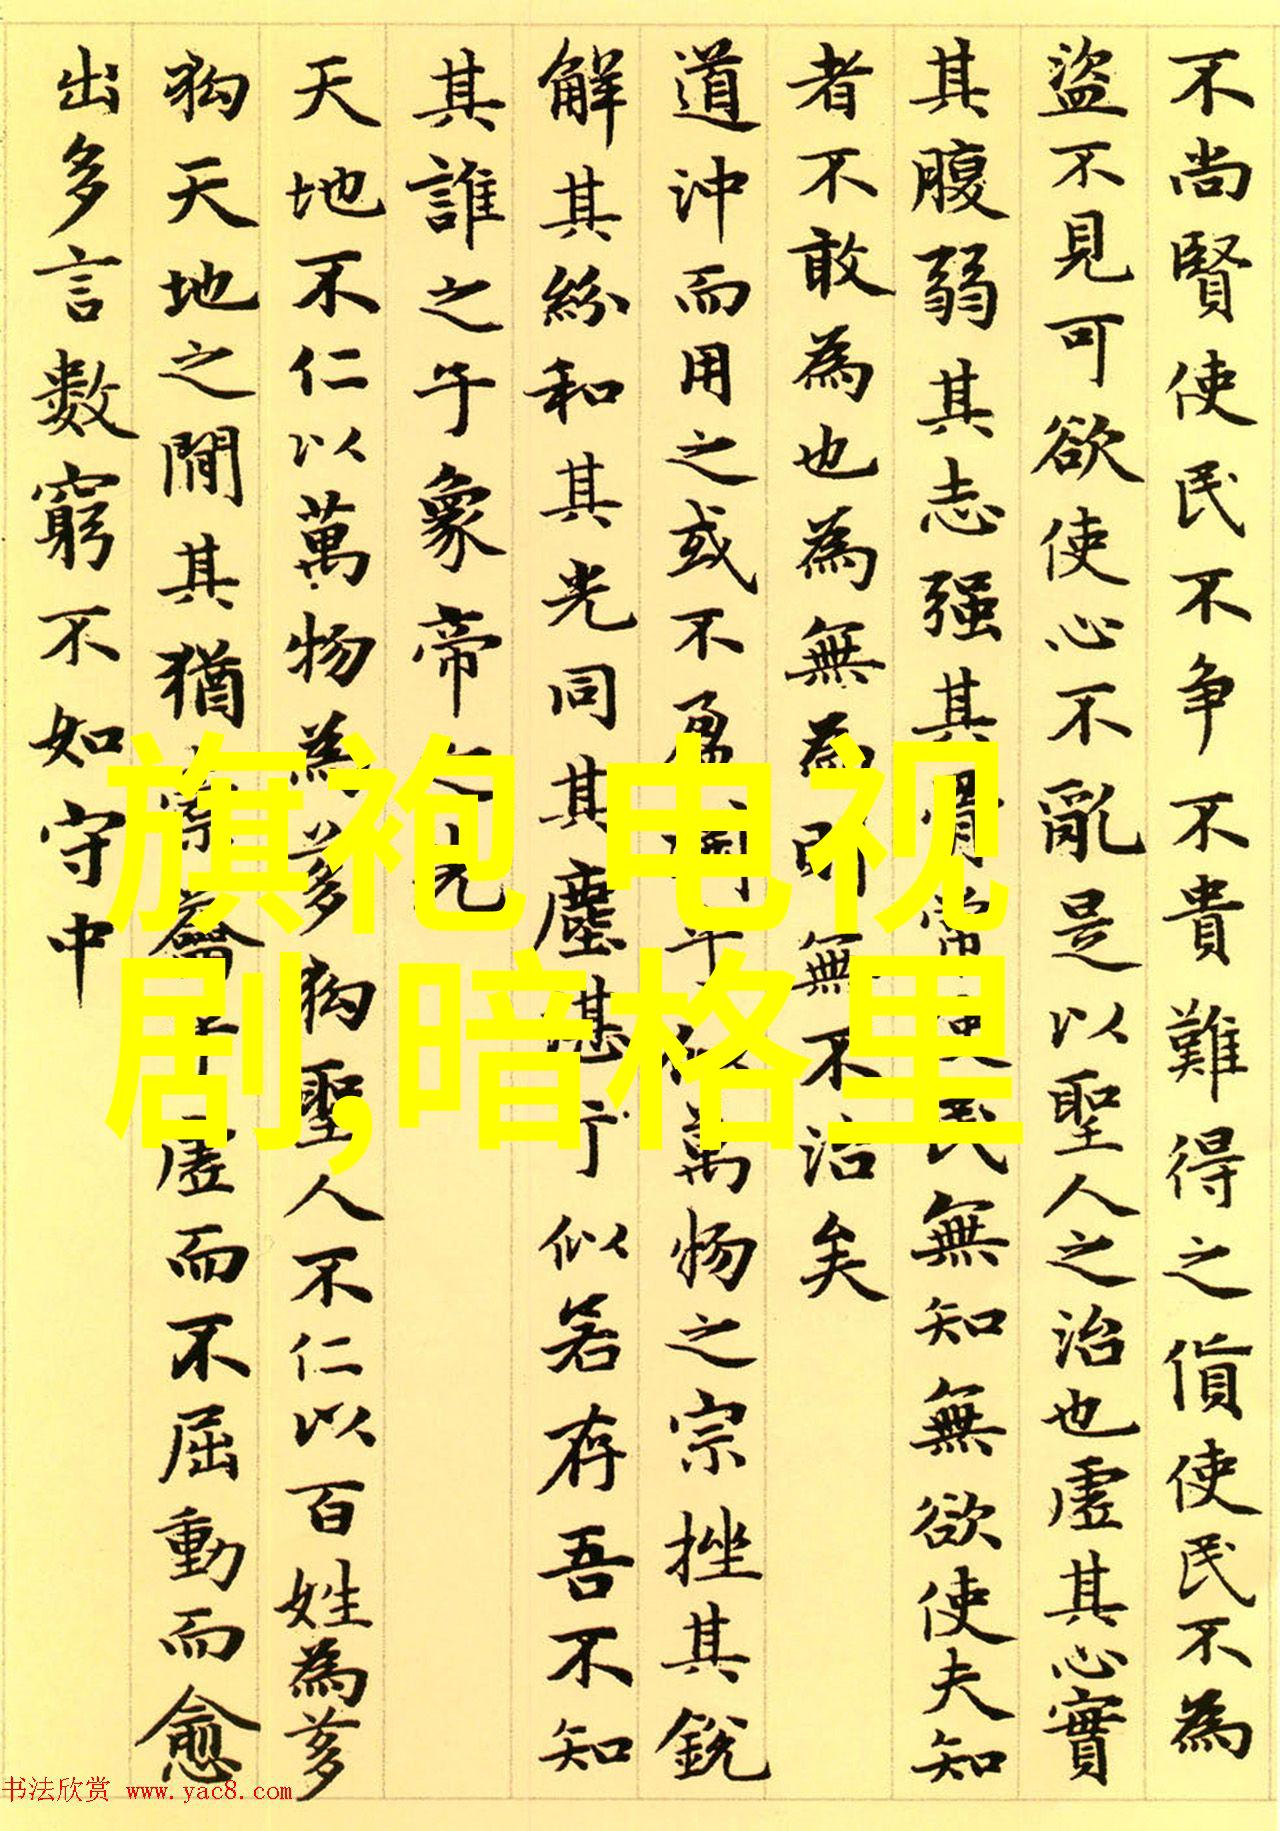 不尚賢使民不争不貴難得之貨使民不為
盜不見可欲使心不亂是以聖人之治也虛其心實
其腹弱其志强其骨常使民無知無欲使夫知
者不敢為也為無為即無不治矣
道沖而用之或不盈淵乎似萬物之宗挫其銳
解其紛和其光同其塵湛兮似若存吾不知
其誰之子象帝之先
天地不仁以萬物為芻狗聖人不仁以百姓為芻
狗天地之間其猶橐龠乎虛而不屈動而愈
出多言數窮不如守中
旗袍 电视
剧,暗格里
书法欣赏 www.yac8.com